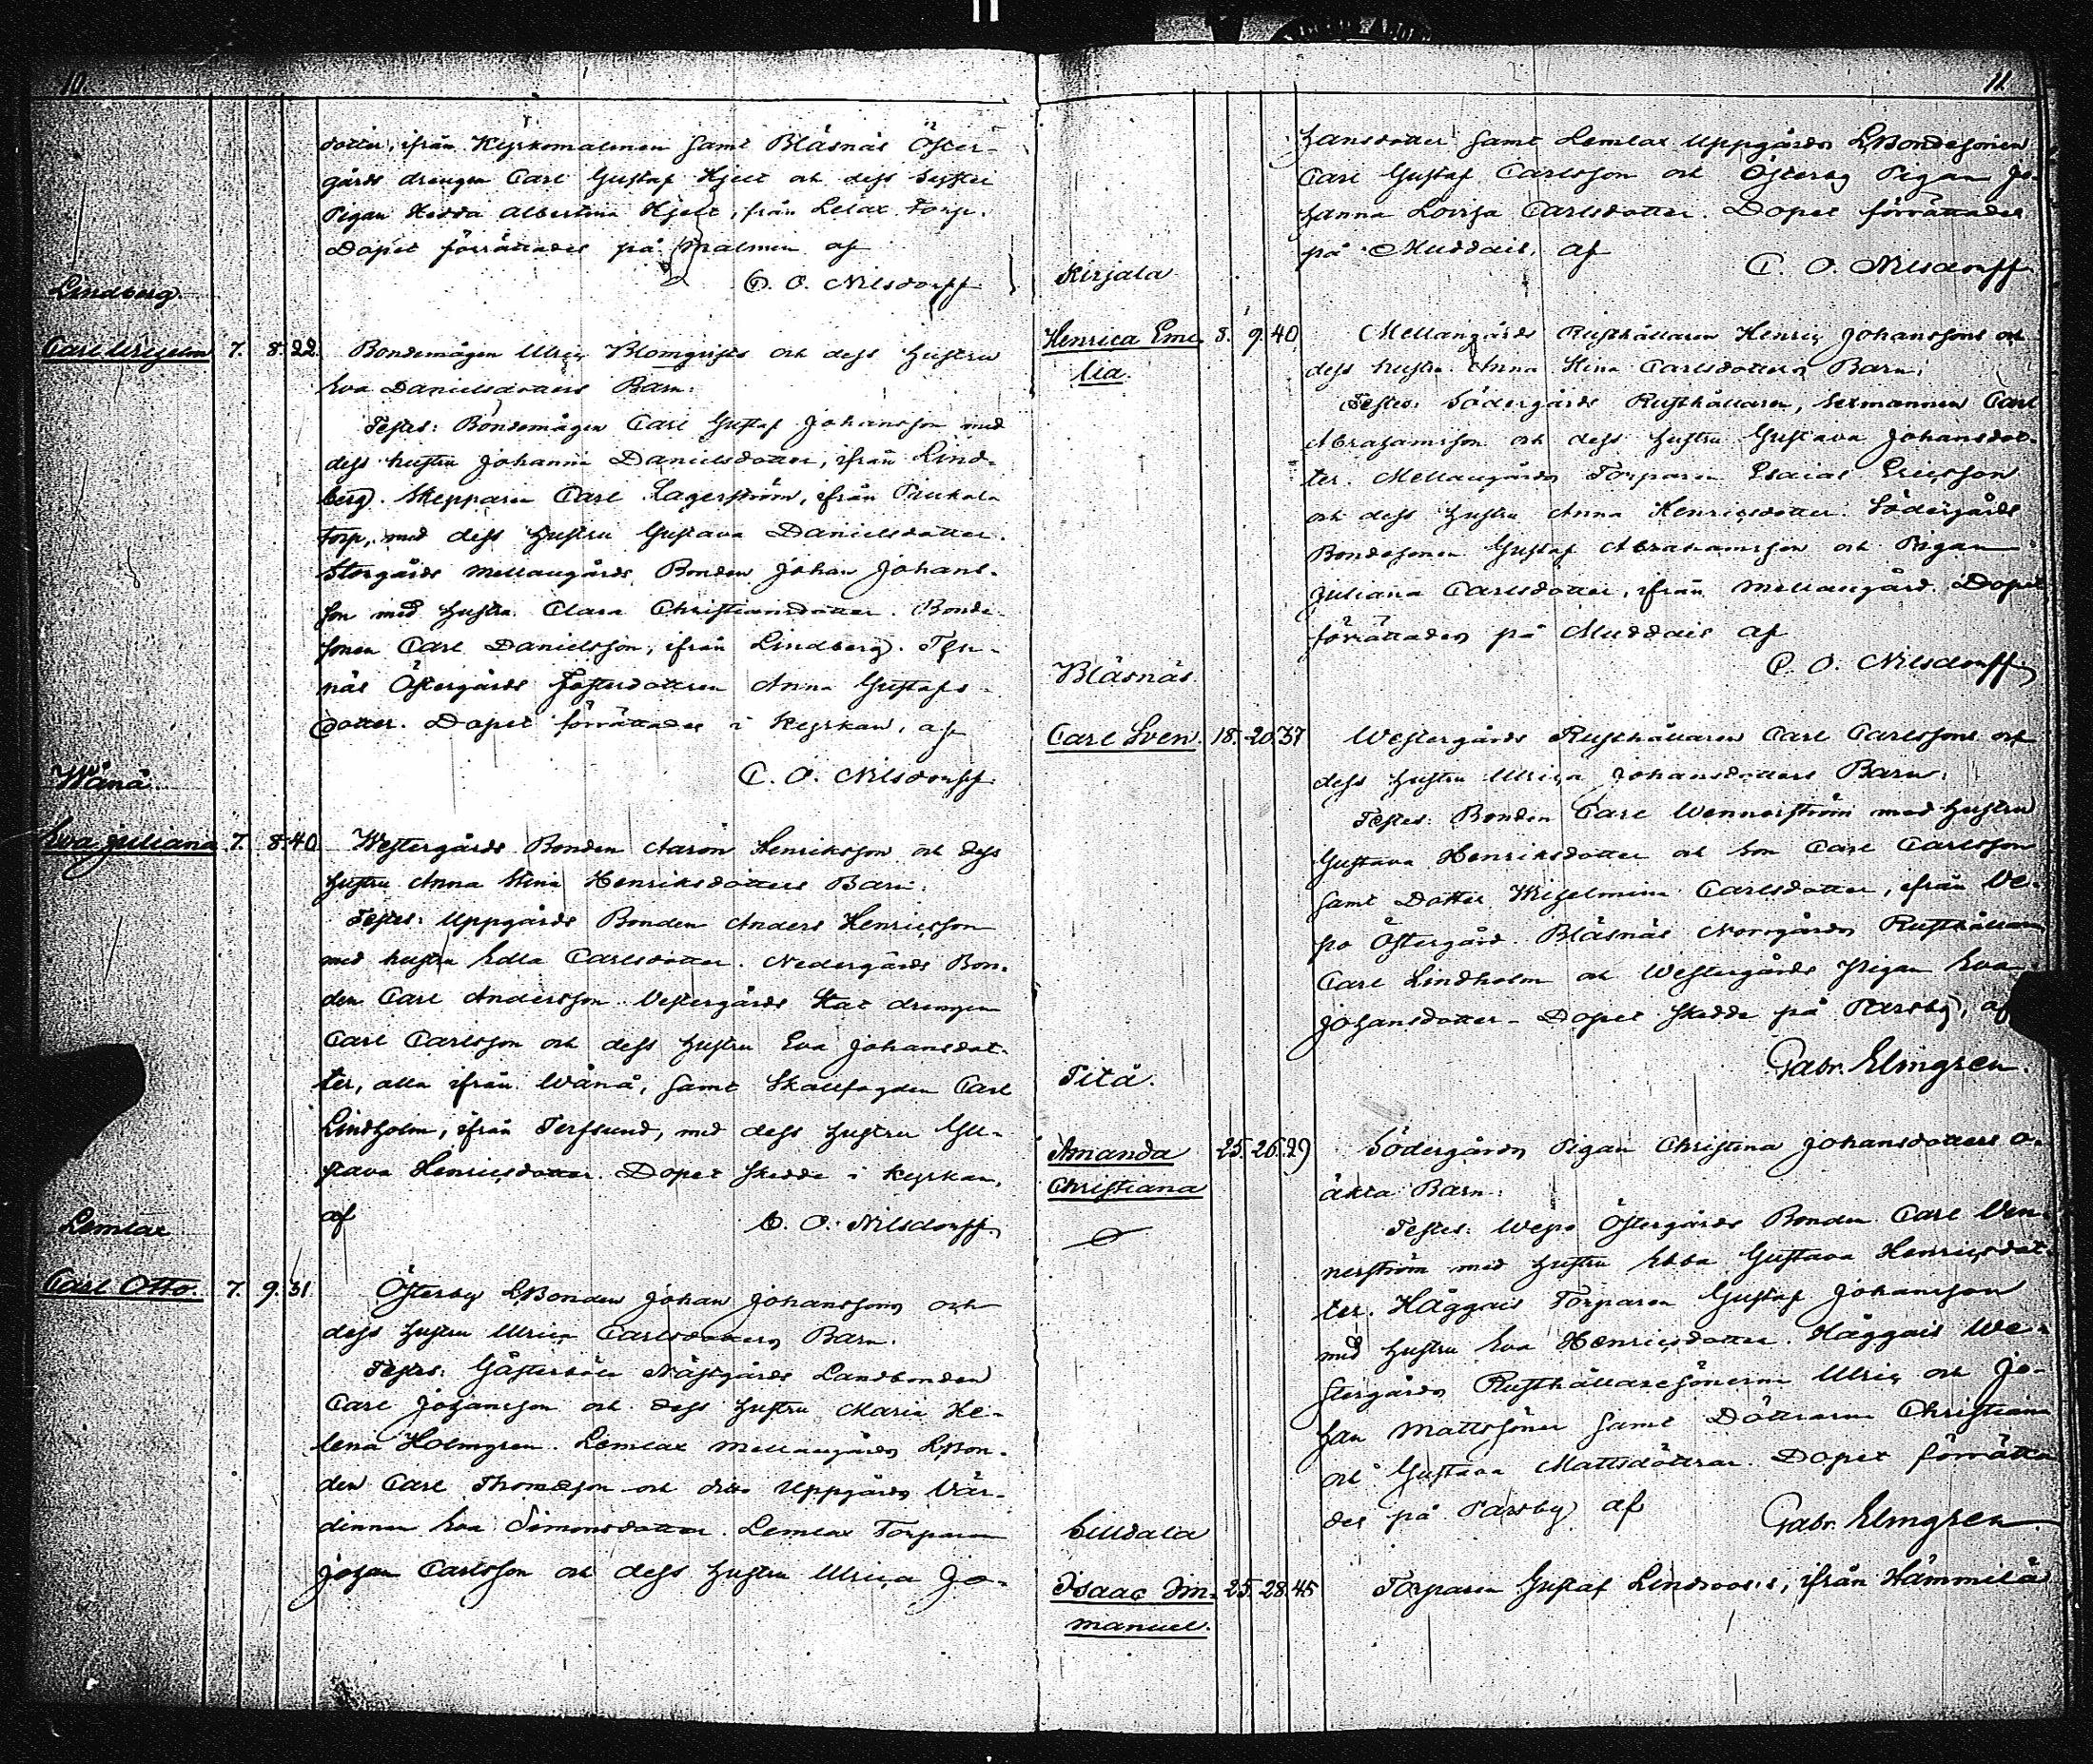 10.
dotter, ifrån Kyrkomalmen samt Bläsnäs Öster-
gårds drengen Carl Gustaf Hjelt och dess syster
Pigan Hedda Albertina Hjelt, från Lelax torp.
Dopet förrättades på Malmen af
C. O. Nilsdorff
Lindberg
Carl Wilhelm 7. 8. 22. Bondemågen Ulric Blomqvists och dess hustru
Eva Danielsdotters Barn:
Testes: Bondemågen Carl Gustaf Johansson med
dess hustru Johanna Danielsdotter, ifrån Lind-
berg. Skepparen Carl Lagerström, ifrån
torp, med dess hustru Gustava Danielsdotter.
Storgårds Mellangårds Bonden Johan Johans-
son med hustru Clara Christiansdotter. Bonde-
sonen Carl Danielsson, ifrån Lindberg.
näs Östergårds fosterdottren Anna Gustafs-
dotter. Dopet förrättades i Kyrkan, af
C. O. Nilsdorff
Wånå
Eva Juliana 7. 8. 40 Westergårds Bonden Aaron Henriksson och dess
hustru Anna Stina Henriksdotters Barn.
Testes: Uppgårds Bonden Anders Henricsson
med hustru Edla Carlsdotter. Nedergårds Bon-
den Carl Andersson. Vestergårds Stat drengen
Carl Carlsson och dess hustru Eva Johansdot-
ter, alla ifrån Wånå, samt Skallfogden Carl
Lindholm, ifrån Terfsund, med dess hustru Gu-
stava Henricsdotter. Dopet skedde i Kyrkan,
af C. O. Nilsdorff
Lemlax
Carl Otto. 7. 9. 31 Österby LBonden Johan Johanssons och
dess hustru Ulrica Carlsdotters Barn.
Testes: Gästerböle Nästgårds Landbonden
Carl Johansson och dess hustru Maria He-
lena Holmgren. Lemlax Mellangårds LBon-
den Carl Thomasson och ditto Uppgårds Vär-
dinnan Eva Simonsdotter. Lemlax Torparen
Johan Carlsson och dess hustru Ulrica Jo-
11
hansdotter samt Lemlax Uppgårds LBondesonen
Carl Gustaf Carlsson och Österby Pigan Jo-
hanna Lovisa Carlsdotter. Dopet förrättades
på Muddais, af
C. O. Nilsdorff
Kirjala
Henrica Emi- 8. 9. 40 Mellangårds Rusthållaren Henric Johanssons och
lia. dess hustru Anna Stina Carlsdotters Barn.
Testes: Södergårds Rusthållaren, Sexmannen Carl
Abrahamsson och dess hustru Gustava Johansdot-
ter. Mellangårds Torparen Esaias Ericsson
och dess hustru Anna Henricsdotter. Södergårds
Bondesonen Gustaf Abrahamsson och Pigan
Juliana Carlsdotter, ifrån Mellangård. Dopet
förrättades på Muddais af
C. O. Nilsdorff
Bläsnäs
Carl Sven. 18. 20. 37 Westergårds Rusthållaren Carl Carlssons och
dess hustru Ulrica Johansdotters Barn.
Testes: Bonden Carl Wennerström med hustru
Gustava Henriksdotter och Son Carl Carlsson
samt Dotter Wilhelmina Carlsdotter, ifrån Ve-
po Östergård. Bläsnäs Norrgårds Rusthållare
Carl Lindholm och Westergårds Pigan Eva
Johansdotter. Dopet skedde på Parsby, af
Gabr. Elmgren.
Pitä.
Amanda 25. 26. 29 Södergårds Pigan Christina Johansdotters o-
Christiana äkta Barn.
Testes: Wepo Östergårds Bonden Carl Wen-
nerström med hustru Ebba Gustava Henricsdot-
ter. Häggais Torparen Gustaf Johansson
med hustru Eva Henricsdotter. Häggais We-
stergårds Rusthållaresönerne Ulric och Jo-
han Mattssöner samt Döttrarne Christina
och Gustava Mattsdöttrar. Dopet förrätta-
des på Parsby af
Gabr. Elmgren
Silldala
Isaac Im- 25. 28. 45 Torparen Gustaf Lindroos's, ifrån Hämmilä
manuel.